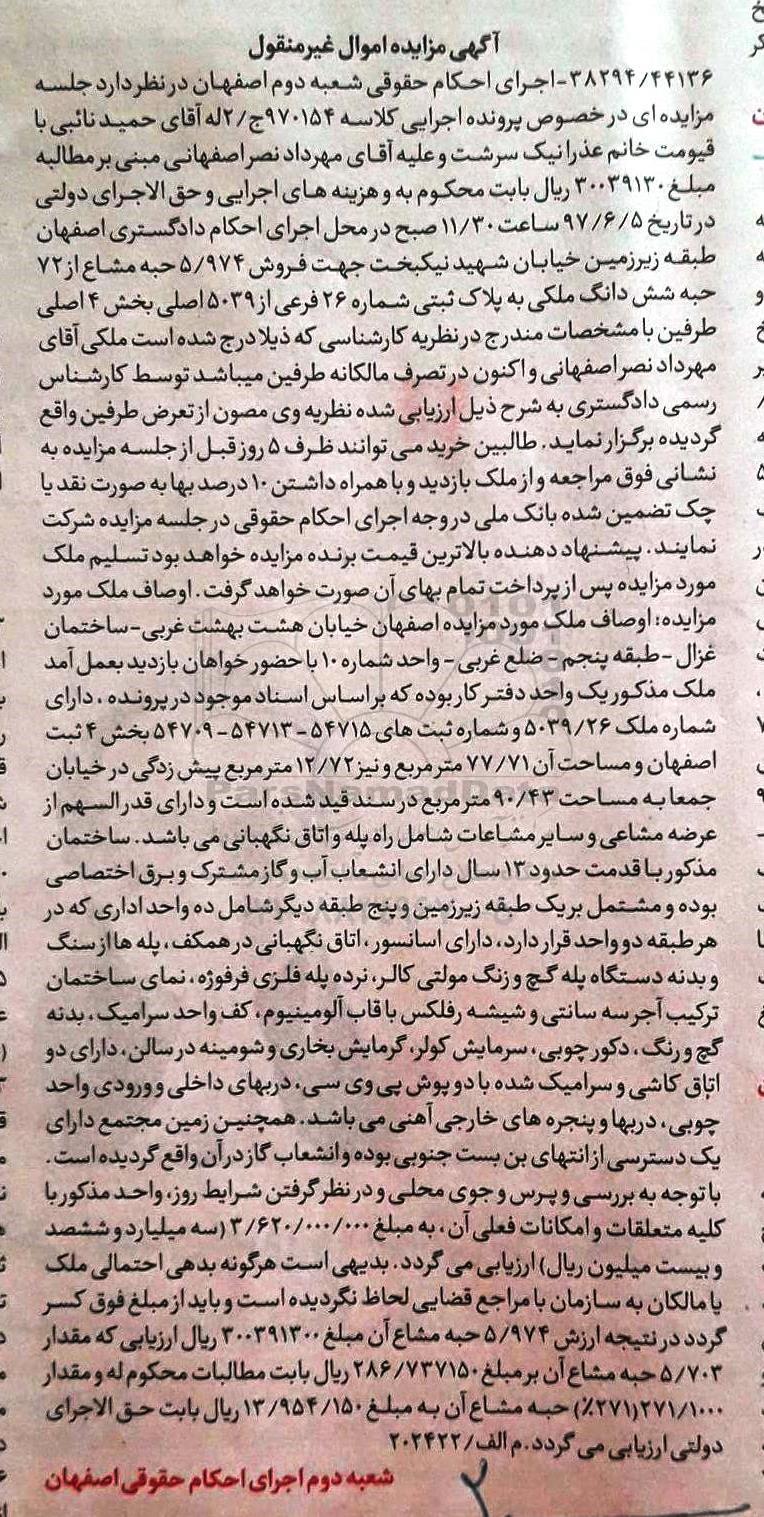 آگهی مزایده اموال غیرمنقول
۳۸۲۹۴/۴۴۱۳۶-اجرای احکام حقوقی شعبه دوم اصفهان در نظر دارد جلسه
مزایده ای در خصوص پرونده اجرایی کلاسه ۹۷۰۱۵۴ج/۲له آقای حمید نائبی با
قیومت خانم عذرا نیک سرشت و علیه آقای مهرداد نصر اصفهانی مبنی بر مطالبه
مبلغ ۳۰۰۳۹۱۳۰ ریال بابت محکوم به و هزینه های اجرایی و حق الاجرای دولتی
در تاریخ ۹۷/۶/۵ ساعت ۱۱/۳۰ صبح در محل اجرای احکام دادگستری اصفهان
طبقه زیرزمین خیابان شهید نیکبخت جهت فروش ۵/۹۷۴ حبه مشاع از ۷۲
حبه شش دانگ ملکی به پلاک ثبتی شماره ۲۶ فرعی از ۵۰۳۹ اصلی بخش ۴ اصلی
طرفین با مشخصات مندرج در نظریه کارشناسی که ذیلا درج شده است ملکی آقای
مهرداد نصر اصفهانی و اکنون در تصرف مالکانه طرفین میباشد توسط کارشناس
رسمی دادگستری به شرح ذیل ارزیابی شده نظریه وی مصون از تعرض طرفین واقع
گردیده برگزار نماید. طالبین خرید می توانند ظرف ۵ روز قبل از جلسه مزایده به
نشانی فوق مراجعه و از ملک بازدید و با همراه داشتن ۱۰ درصد بها به صورت نقد یا
چک تضمین شده بانک ملی در وجه اجرای احکام حقوقی در جلسه مزایده شرکت
نمایند. پیشنهاد دهنده بالاترین قیمت برنده مزایده خواهد بود تسلیم ملک
مورد مزایده پس از پرداخت تمام بهای آن صورت خواهد گرفت. اوصاف ملک مورد
مزایده: اوصاف ملک مورد مزایده اصفهان خیابان هشت بهشت غربی-ساختمان
غزال -طبقه پنجم - ضلع غربی - واحد شماره ۱۰ با حضور خواهان بازدید بعمل آمد
ملک مذکور یک واحد دفتر کار بوده که بر اساس اسناد موجود در پرونده ، دارای
شماره ملک ۵۰۳۹/۲۶ و شماره ثبت های ۵۴۷۱۵ - ۵۴۷۱۳ - ۵۴۷۰۹ بخش ۴ ثبت
اصفهان و مساحت آن ۷۷/۷۱ متر مربع و نیز ۱۲/۷۲ متر مربع پیش زدگی در خیابان
جمعا به مساحت ۹۰/۴۳ متر مربع در سند قید شده است و دارای قدر السهم از
عرضه مشاعی و سایر مشاعات شامل راه پله و اتاق نگهبانی می باشد. ساختمان
مذکور با قدمت حدود ۱۳ سال دارای انشعاب آب و گاز مشترک و برق اختصاصی
بوده و مشتمل بر یک طبقه زیرزمین و پنج طبقه دیگر شامل ده واحد اداری که در
هر طبقه دو واحد قرار دارد، دارای اسانسور ، اتاق نگهبانی در همکف ، پله ها از سنگ
و بدنه دستگاه پله گچ و زنگ مولتی کالر، نرده پله فلزی فرفوژه ، نمای ساختمان
ترکیب آجر سه سانتی و شیشه رفلکس با قاب آلومینیوم، کف واحد سرامیک ، بدنه
گچ و رنگ ، دکور چوبی ، سرمایش کولر، گرمایش بخاری و شومینه در سالن، دارای دو
اتاق کاشی و سرامیک شده با دو پوش پی وی سی، دربهای داخلی و ورودی واحد
چوبی ، دربها و پنجره های خارجی آهنی می باشد. همچنین زمین مجتمع دارای
یک دسترسی از انتهای بن بست جنوبی بوده و انشعاب گاز در آن واقع گردیده است .
با توجه به بررسی و پرس و جوی محلی و در نظر گرفتن شرایط روز، واحد مذکور با
کلیه متعلقات و امکانات فعلی آن ، به مبلغ ۳/۶۲۰/۰۰۰/۰۰۰ (سه میلیارد و ششصد
و بیست میلیون ریال) ارزیابی می گردد. بدیهی است هرگونه بدهی احتمالی ملک
یا مالکان به سازمان یا مراجع قضایی لحاظ نگردیده است و باید از مبلغ فوق کسر
گردد در نتیجه ارزش ۵/۹۷۴ حبه مشاع آن مبلغ ۳۰۰۳۹۱۳۰۰ ریال ارزیابی که مقدار
۵/۷۰۳ حبه مشاع آن بر مبلغ ۲۸۶/۷۳۷۱۵۰ ریال بابت مطالبات محکوم له و مقدار
۲۷۱/۱۰۰۰(۲۷۱٪) حبه مشاع آن به مبلغ ۱۳/۹۵۴/۱۵۰ ریال بابت حق الاجرای
دولتی ارزیابی می گردد. م الف/۲۰۲۴۲۲
شعبه دوم اجرای احکام حقوقی اصفهان